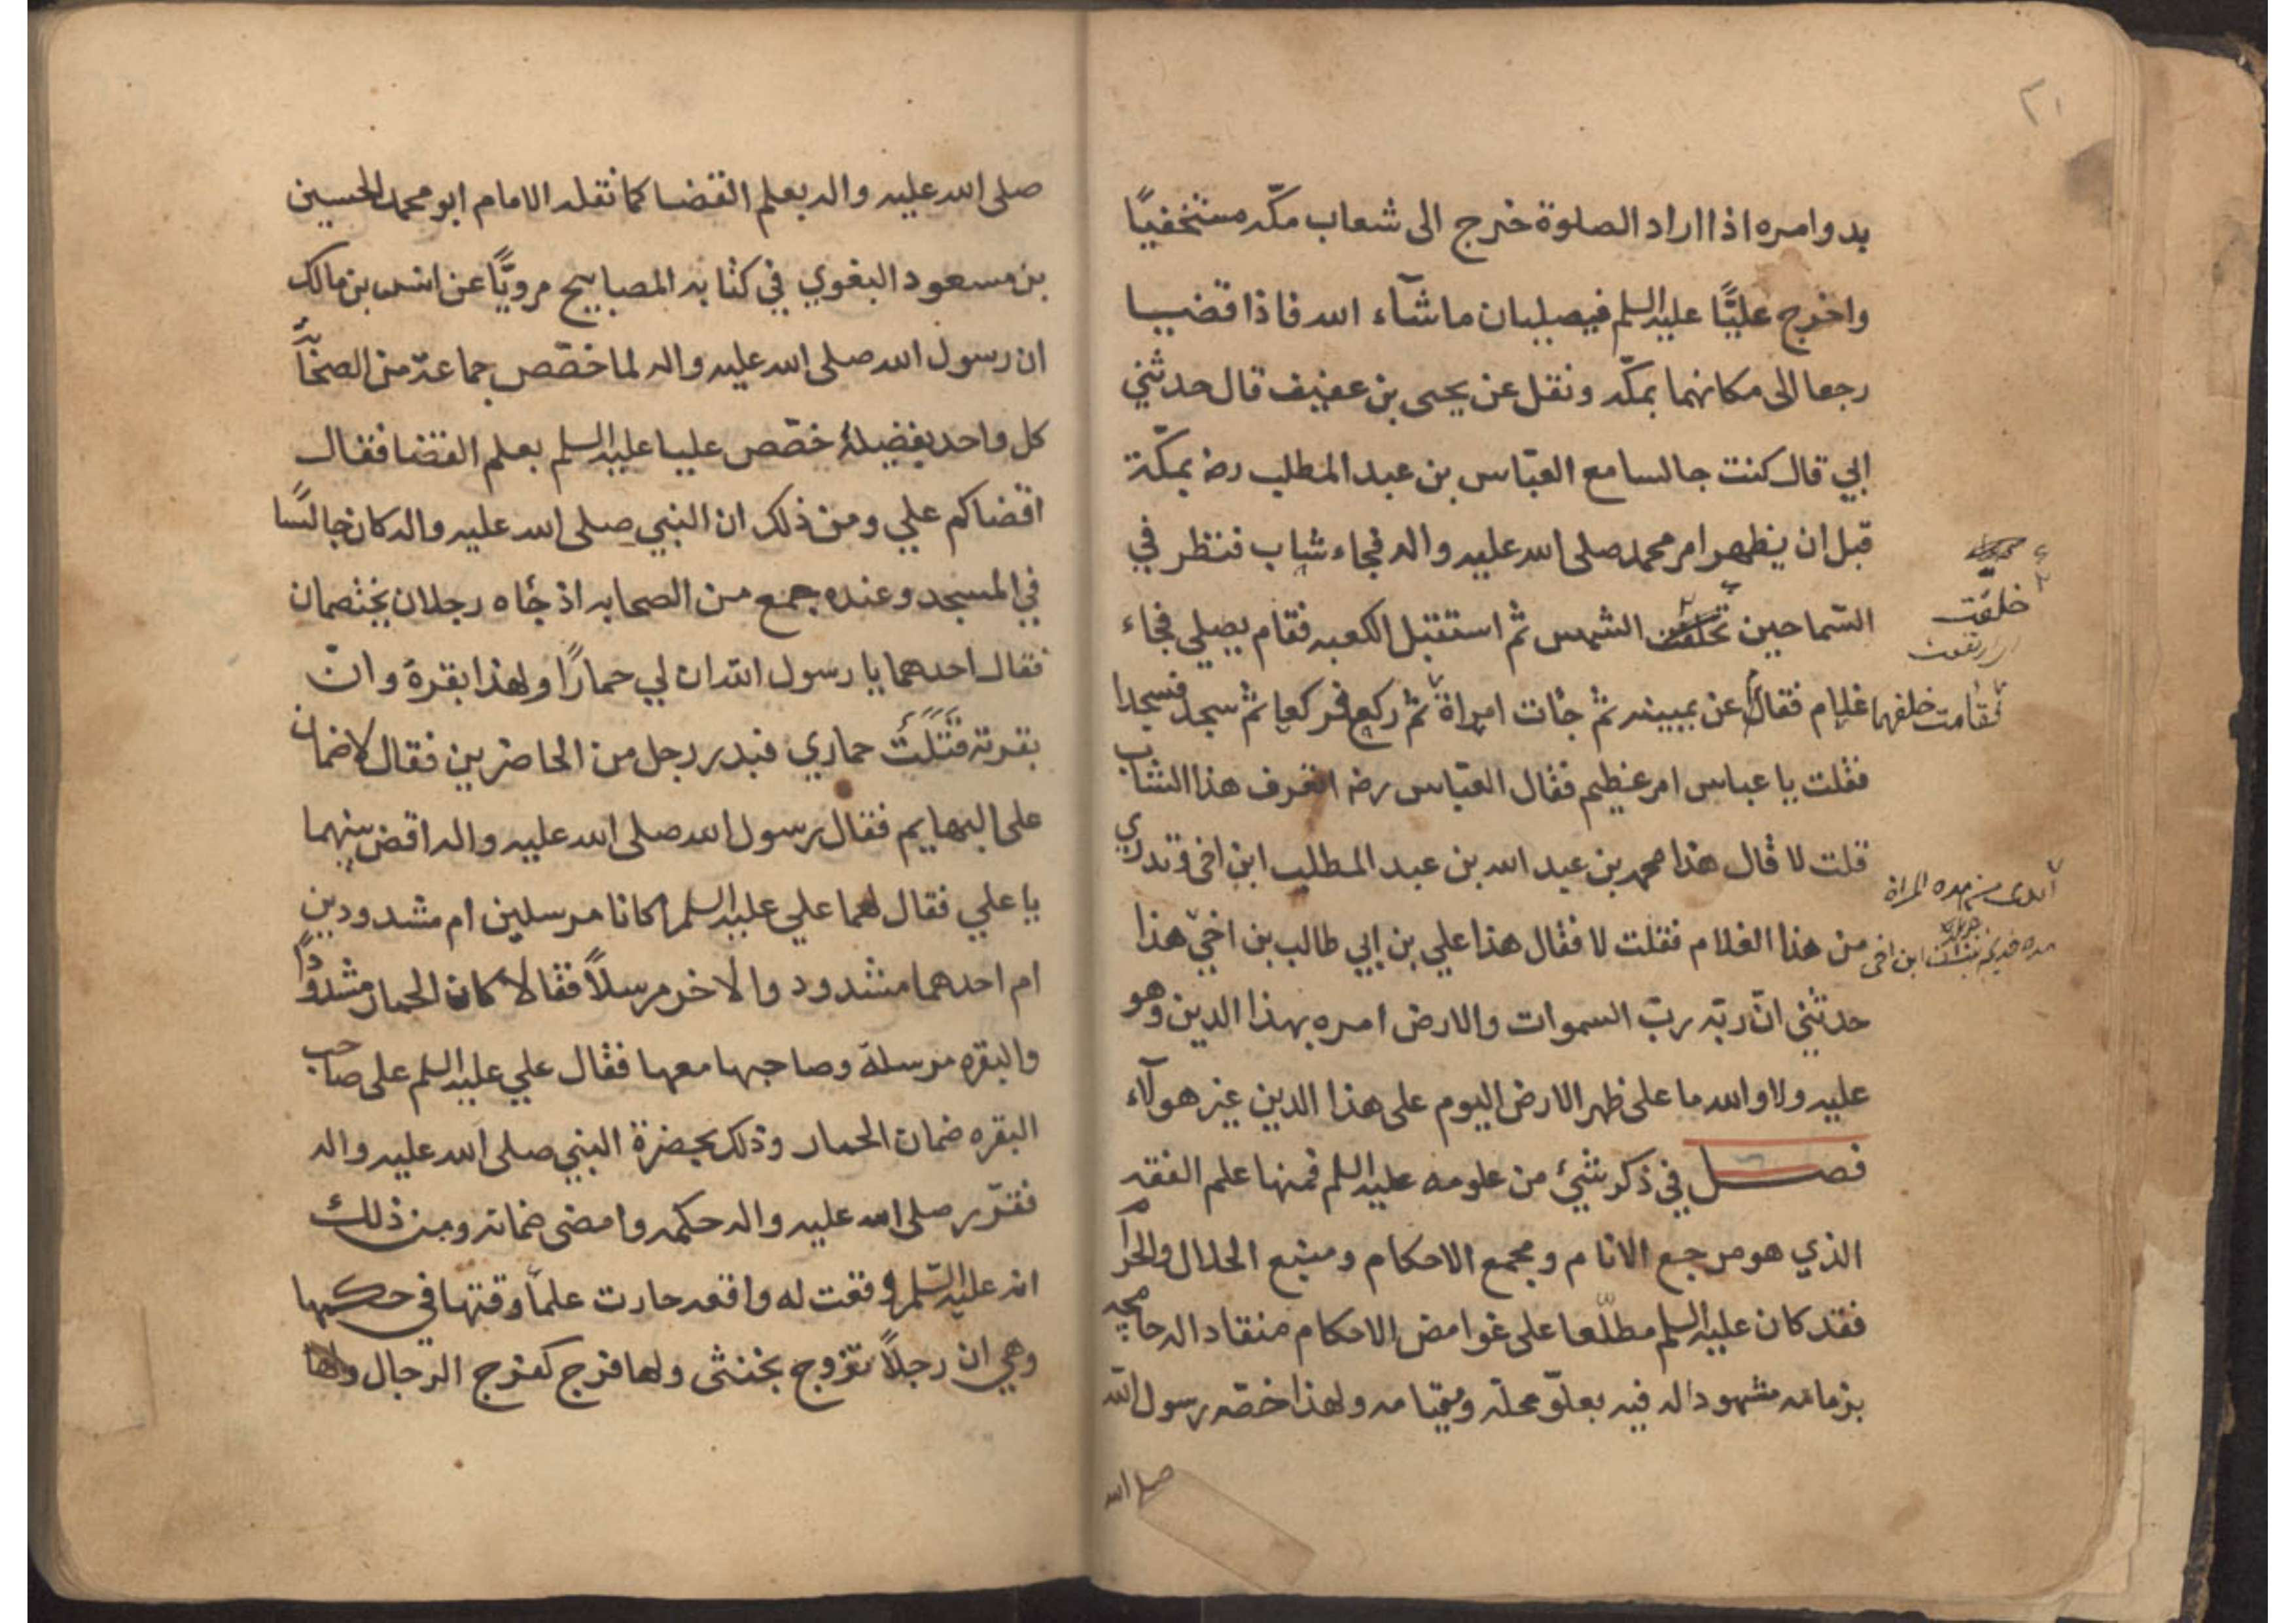 ٢١
بدو امره اذا اراد الصلوة خرج الى شعاب مكّه مستخفيًا
واخرج عليًّا عليه السلم فيصليان ما شآء الله فاذا قضيا
رجعا الى مكانهما بمكّه ونقل عن يحيى بن عفيف قال حدثني
ابي قال كنت جالسا مع العبّاس بن عبد المطلب رضه بمكّة
قبل ان يظهر امر محمد صلى الله عليه واله فجاء شاب فنظر في
السّما حين تحلقت الشمس ثم استقبل الكعبه فقام يصلي فجاء
غلام فقام عن يمينه ثم جأت امراة ثم ركع فركعا ثم سجد فسجدا
فقلت يا عباس امر عظيم فقال العبّاس رضه اتعرف هذا الشاب
قلت لا قال هذا محمد بن عبد الله بن عبد المطلب ابن اخي وتدري
من هذا الغلام فقلت لا فقال هذا علي بن ابي طالب بن اخي هذا
حدثني انّ ربّه ربّ السموات والارض امره بهذا الدين وهو
عليه ولا والله ما على ظهر الارض اليوم على هذا الدين غير هولآء
فصل في ذكر شئ من علومه عليه السلم فمنها علم الفقه
الذي هو مرجع الانام ومجمع الاحكام ومنبع الحلال والحرام
فقد كان عليه السلم مطلّعا على غوامض الاحكام منقادا له جامحه
بزمامه مشهودا له فيه بعلوّ محلّه ومقامه ولهذا خصّه رسول الله
صلى الله
خلقت
فقامت خلفهما
اتدري من هذه المراة
هذه خديجة ابن اخي
صلى الله عليه واله بعلم القضا كما نقله الامام ابو محمد الحسين
بن مسعود البغوي في كتابه المصابيح مرويًّا عن انس بن مالك
ان رسول الله صلى الله عليه واله لما خصّص جماعة من الصحابة
كل واحد بفضيلة خصّص عليا عليه السلم بعلم القضا فقال
اقضاكم علي ومن ذلك ان النبي صلى الله عليه واله كان جالسًا
في المسجد وعنده جمع من الصحابه اذ جأه رجلان يختصمان
فقال احدهما يا رسول الله ان لي حمارًا ولهذا بقرة وانّ
بقرته قَتَلَتْ حماري فبدر رجل من الحاضرين فقال لا ضمان
على البهايم فقال رسول الله صلى الله عليه واله اقض بينهما
يا علي فقال لهما علي عليه السلم اكانا مرسلين ام مشدودين
ام احدهما مشدود والاخر مرسلاً فقالا كان الحمار مشدودًا
والبقره مرسلة وصاحبها معها فقال علي عليه السلم على صاحب
البقره ضمان الحمار وذلك بحضرة النبي صلى الله عليه واله
فقرّر صلى الله عليه واله حكمه وامضى ضمانه ومن ذلك
انه عليه السّلم وقعت له واقعه حارت علمآ وقتها في حكمها
وهي ان رجلاً تزوج بخنثى ولها فرج كفرج الرجال ولها